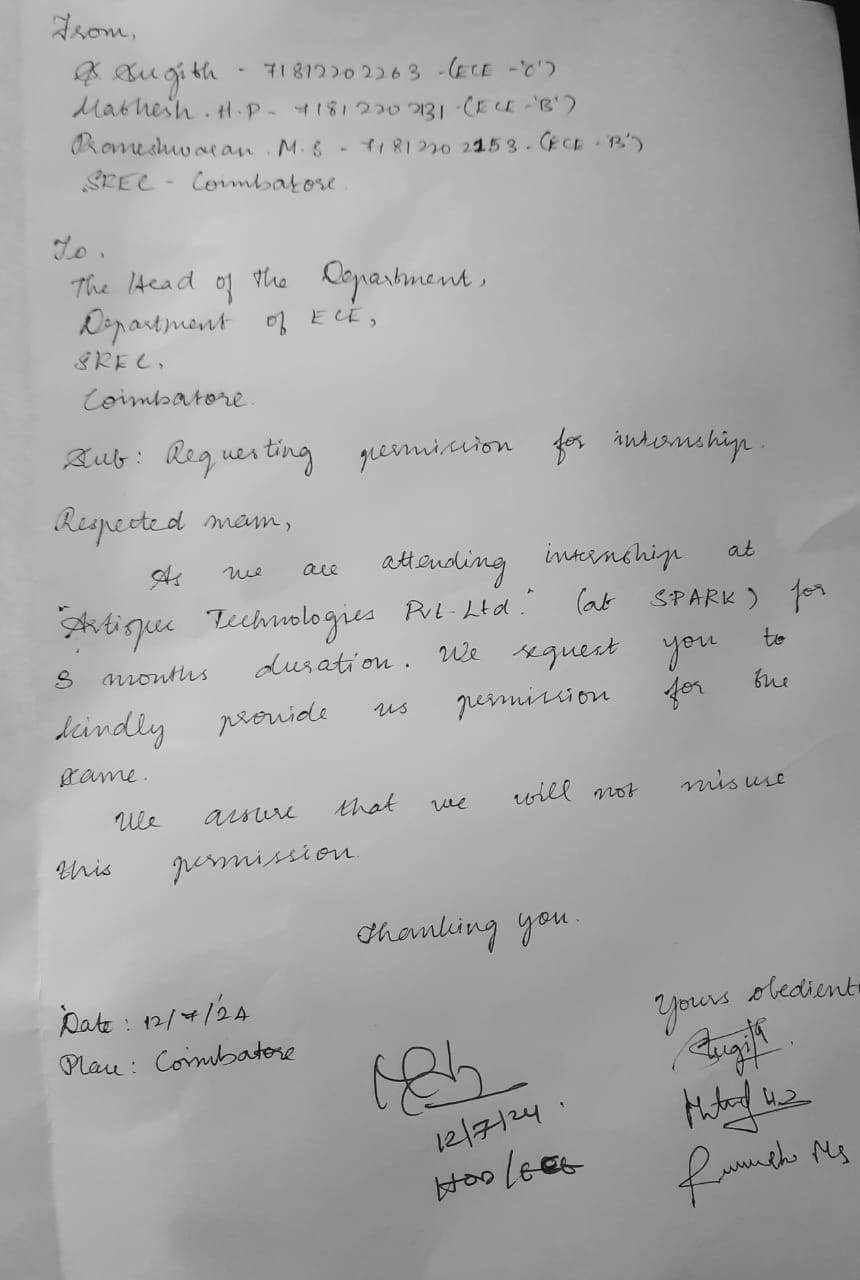 From,
S. Sugith - 71812202263 - (ECE - 'C')
Mathesh . H.P - 71812202131 - (ECE - 'B')
Rameshwaran . M.S - 71812202153 - (ECE - 'B')
SREC - Coimbatore.
To,
The Head of the Department,
Department of ECE,
SREC,
Coimbatore.
Sub: Requesting permission for internship.
Respected mam,
As we are attending internship at
"Technologies Pvt. Ltd." (at SPARK) for
months duration. We request you to
kindly provide us permission for the
same.
We assure that we will not misuse
this permission.
Thanking you.
Date : 12/7/24
Place : Coimbatore
Yours obedient
Sugith
12/7/24.
HOD/ECE